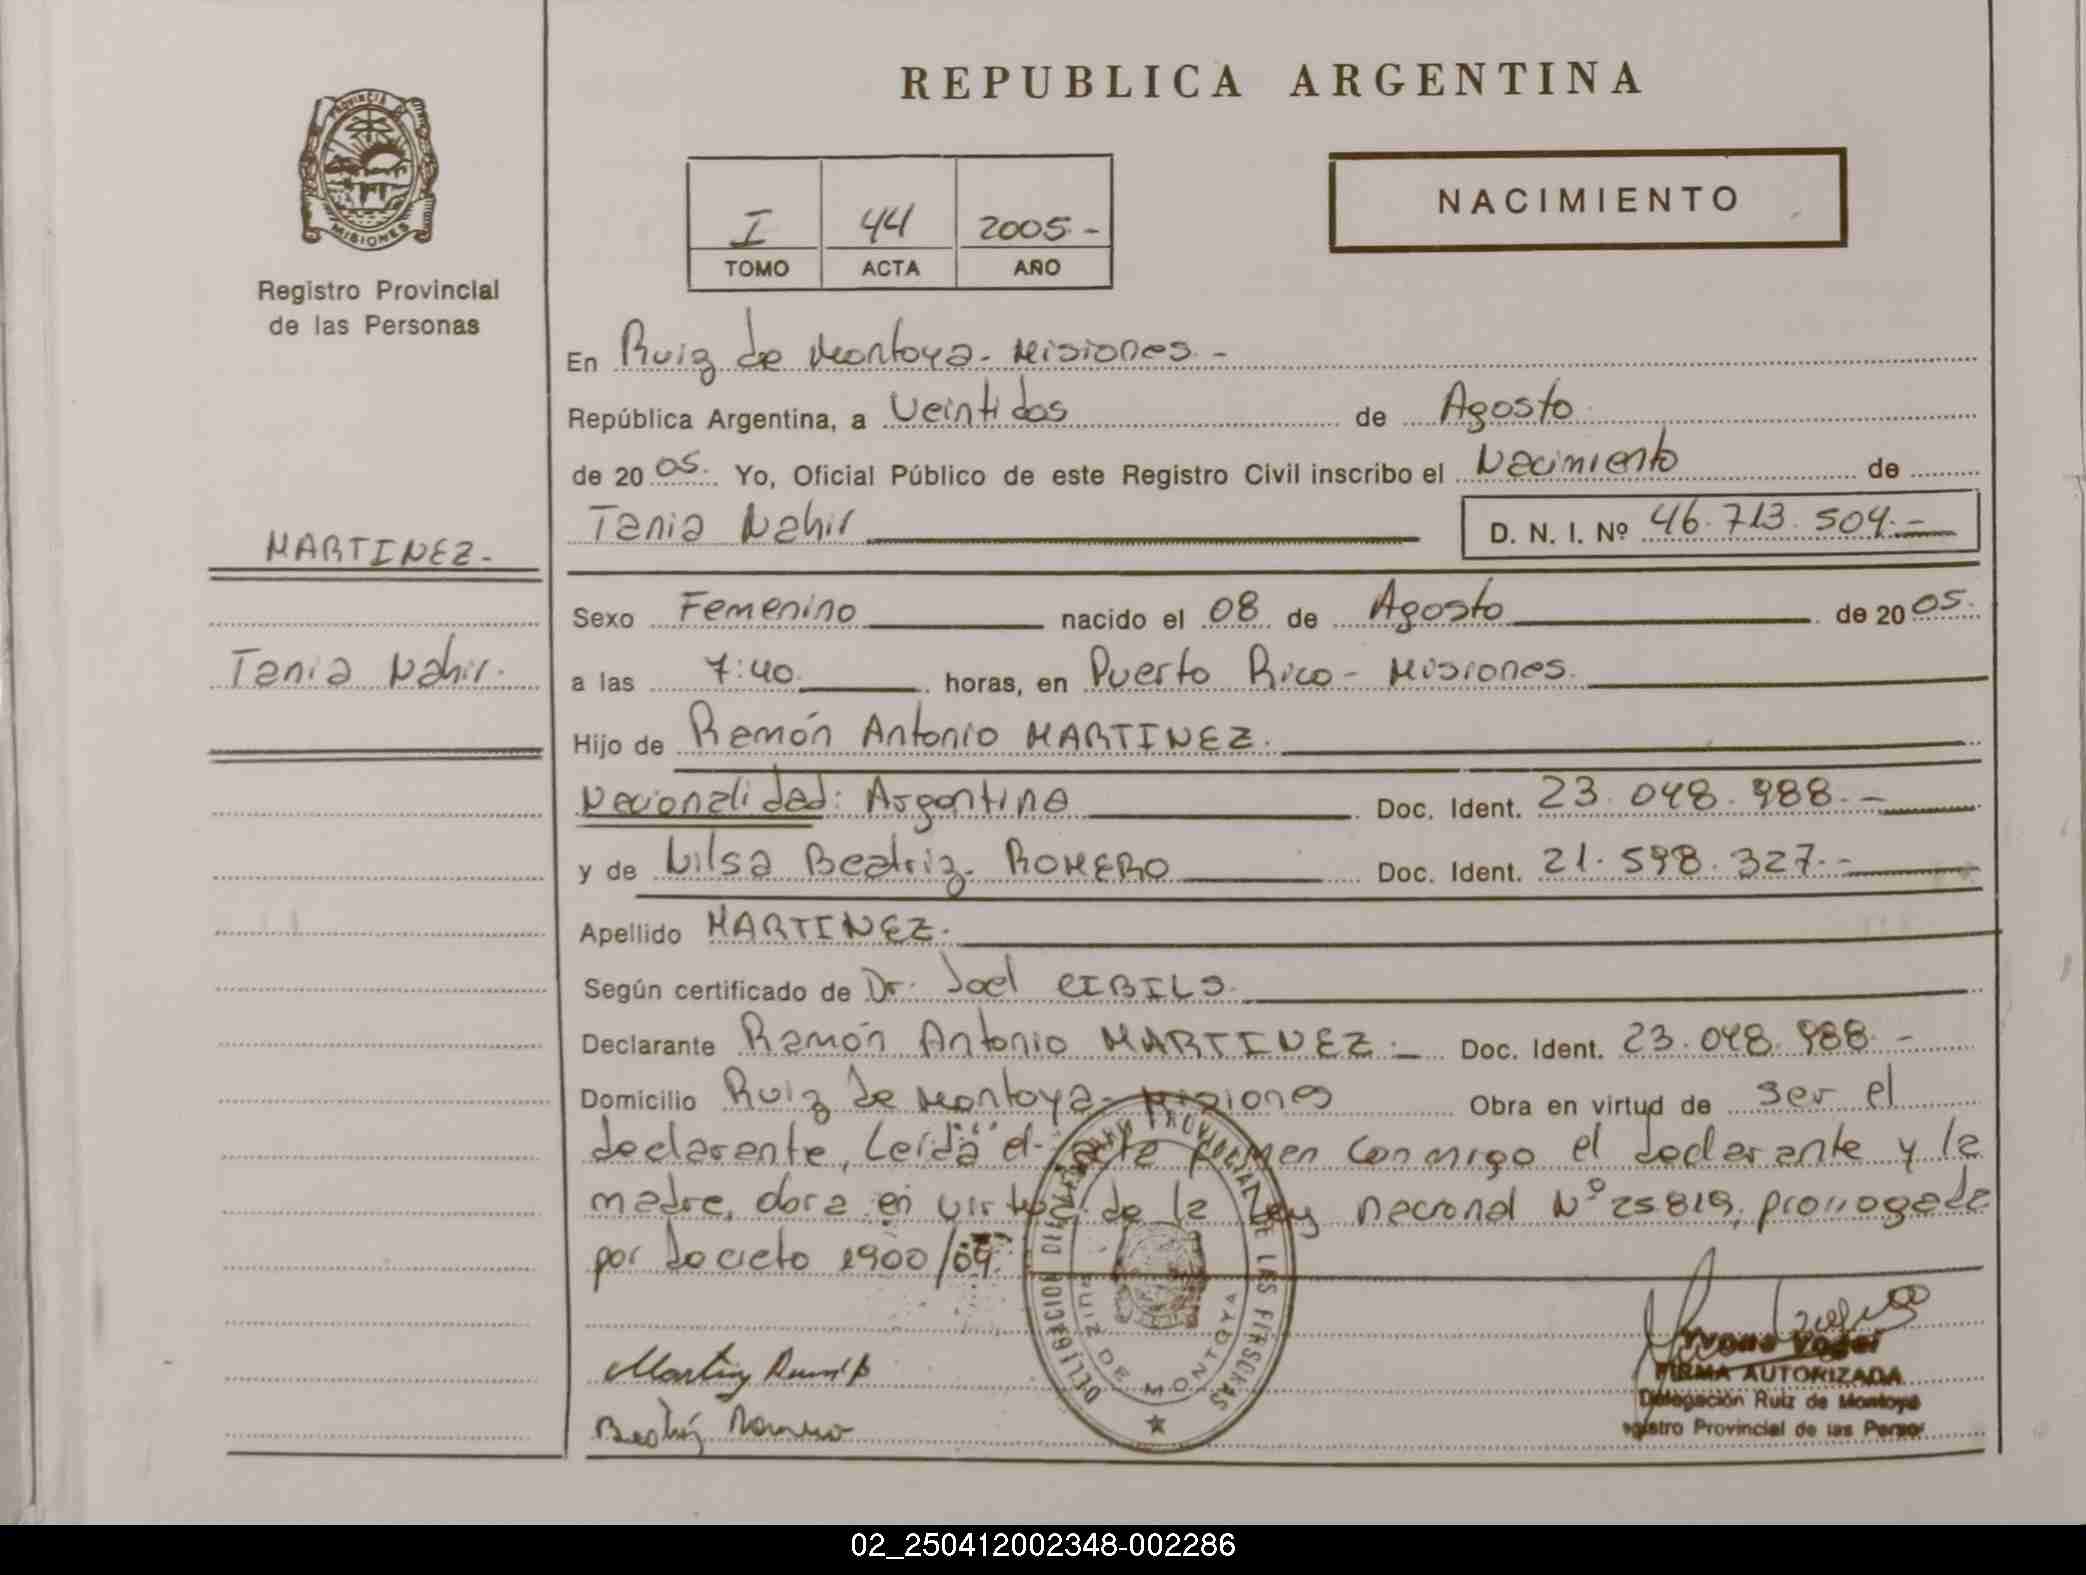 REPUBLICA ARGENTINA
PROVINCIA DE
MISIONES
Registro Provincial
de las Personas
I 44 2005.-
TOMO ACTA AÑO
NACIMIENTO
En Ruiz de Montoya. Misiones.-
República Argentina, a Veintidos de Agosto
de 2005. Yo, Oficial Público de este Registro Civil inscribo el Nacimiento de
Tania Nahir D. N. I. Nº 46.713.504.-
MARTINEZ.-
Tania Nahir.
Sexo Femenino nacido el 08 de Agosto de 2005.
a las 7:40. horas, en Puerto Rico - Misiones.
Hijo de Ramón Antonio MARTINEZ.
Nacionalidad: Argentina Doc. Ident. 23.048.988.-
y de Nilsa Beatriz ROMERO Doc. Ident. 21.598.327.-
Apellido MARTINEZ.
Según certificado de Dr. Joel CIBILS.
Declarante Ramón Antonio MARTINEZ.- Doc. Ident. 23.048.988.-
Domicilio Ruiz de Montoya - Misiones Obra en virtud de ser el
declarante, Leída el acta firmen conmigo el declarante y la
madre, obra en virtud de la Ley nacional Nº 25819, prorrogada
por Decreto 1900/04.
DELEGACION REGISTRO PROVINCIAL DE LAS PERSONAS
RUIZ DE MONTOYA
Beatriz Romero
FIRMA AUTORIZADA
Delegación Ruiz de Montoya
egistro Provincial de las Person
02_250412002348-002286